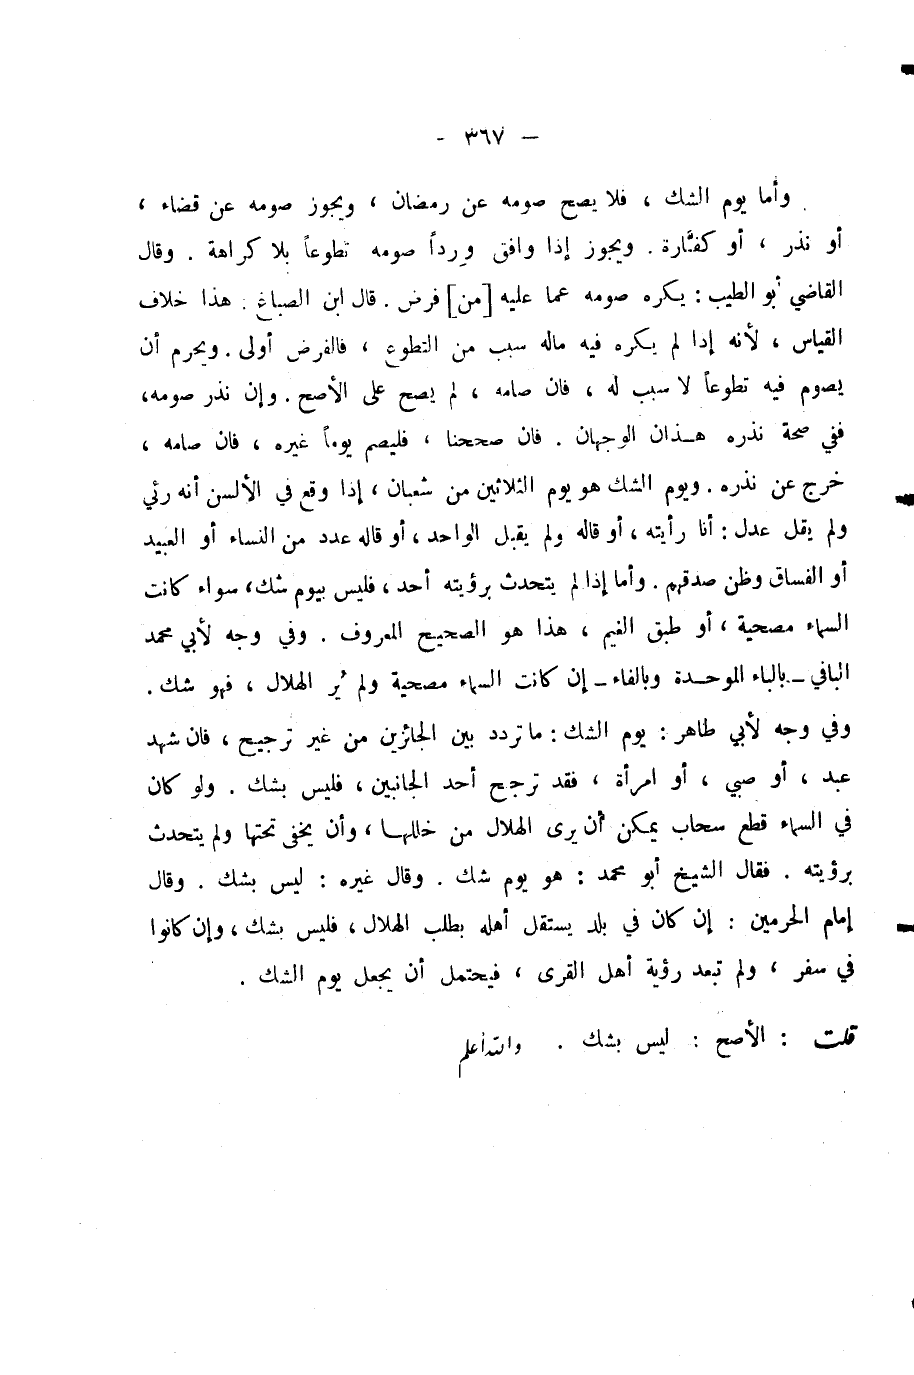 — ٣٦٧ -
وأما يوم الشك ، فلا يصح صومه عن رمضان ، ويجوز صومه عن قضاء ،
أو نذر ، أو كفَّارة . ويجوز إذا وافق ورداً صومه تطوعاً بلا كراهة . وقال
القاضي أبو الطيب : يكره صومه عما عليه [من] فرض . قال ابن الصباغ : هذا خلاف
القياس ، لأنه إذا لم يكره فيه ماله سبب من التطوع ، فالفرض أولى . ويحرم أن
يصوم فيه تطوعاً لا سبب له ، فان صامه ، لم يصح على الأصح . وإن نذر صومه،
ففي صحة نذره هـذان الوجهان . فان صححنا ، فليصم يوماً غيره ، فان صامه ،
خرج عن نذره . ويوم الشك هو يوم الثلاثين من شعبان ، إذا وقع في الألسن أنه رئي
ولم يقل عدل : أنا رأيته ، أو قاله ولم يقبل الواحد ، أو قاله عدد من النساء أو العبيد
أو الفساق وظن صدقهم . وأما إذا لم يتحدث برؤيته أحد ، فليس بيوم شك، سواء كانت
السماء مصحية ، أو طبق الغيم ، هذا هو الصحيح المعروف . وفي وجه لأبي محمد
البافي ـ بالباء الموحـدة وبالفاء ـ إن كانت السماء مصحية ولم يُر الهلال ، فهو شك .
وفي وجه لأبي طاهر : يوم الشك : ما تردد بين الجائزين من غير ترجيح ، فان شهد
عبد ، أو صبي ، أو امرأة ، فقد ترجح أحد الجانبين ، فليس بشك . ولو كان
في السماء قطع سحاب يمكن أن يرى الهلال من خللهـا ، وأن يخفى تحتها ولم يتحدث
برؤيته . فقال الشيخ أبو محمد : هو يوم شك . وقال غيره : ليس بشك . وقال
إمام الحرمين : إن كان في بلد يستقل أهله بطلب الهلال ، فليس بشك ، وإن كانوا
في سفر ، ولم تبعد رؤية أهل القرى ، فيحتمل أن يجعل يوم الشك .
قلت : الأصح : ليس بشك . والله أعلم